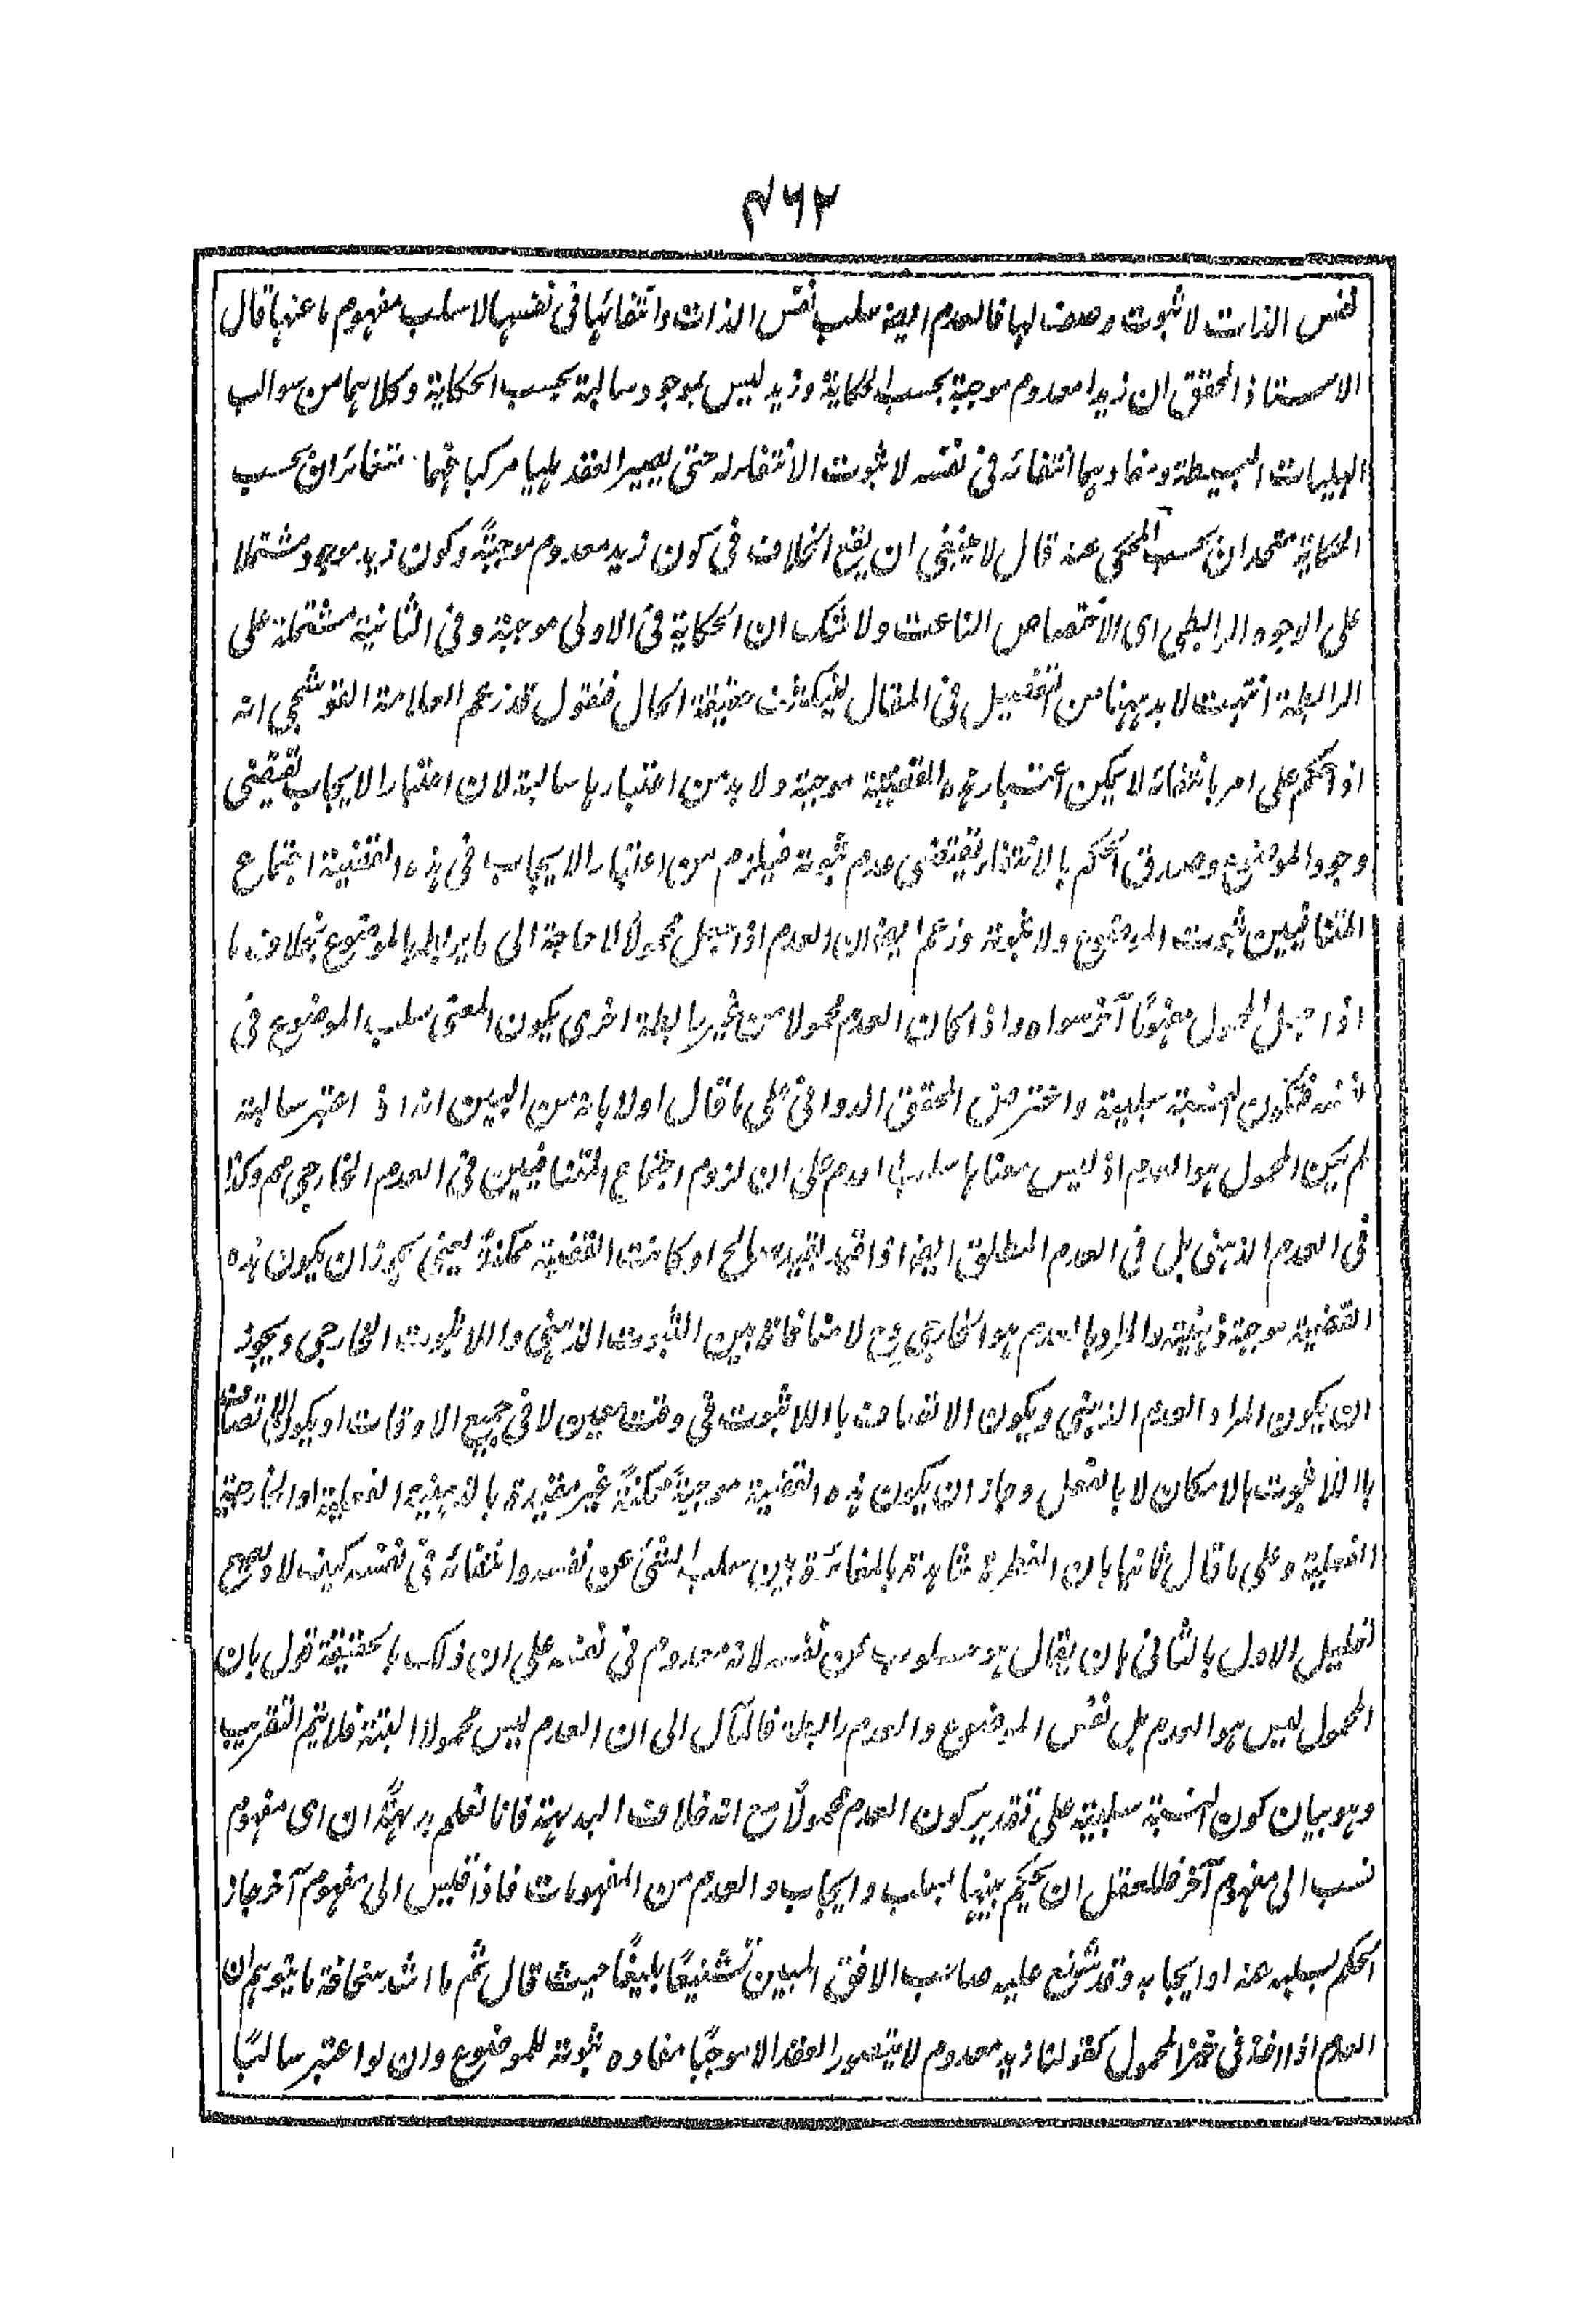 ۴۶۲
نفس الذات لا ثبوت وصف لها فالعدم ايضا سلب نفس الذات وانتفائها فى نفسها لا سلب مفهوم ما عنها قال
الاستاذ المحقق ان زيدا معدوم موجبة بحسب الحكاية وزيد ليس بموجود سالبة بحسب الحكاية وكلاهما من سوالب
الهليات البسيطة ومفادهما انتفائه فى نفسه لا ثبوت الانتفاء له حتى يصير العقد هليا مركبا فهما متغائران بحسب
الحكاية متحدان بحسب المحكى عنه قال لا ينبغى ان يقع الخلاف فى كون زيد معدوم موجبةً وكون زيد موجود مشتملا
على الوجود الرابطى اى الاختصاص الناعت ولا شك ان الحكاية فى الاولى موجبة وفى الثانية مشتملة على
الرابطة انتهت لا بد ههنا من التفصيل فى المقال لينكشف حقيقة الحال فنقول قد زعم العلامة القوشجى انه
اذا حكم على امر بانتفائه لا يمكن اعتبار هذه القضية موجبة ولا بد من اعتبارها سالبة لان اعتبار الايجاب يقتضى
وجود الموضوع وصدق الحكم بالانتفاء يقتضى عدم ثبوته فيلزم من اعتبار الايجاب فى هذه القضية اجتماع
المتنافيين ثبوت الموضوع ولا ثبوته وزعم ايضا ان العدم اذا جعل محمولًا لا حاجة الى ما يربطه بالموضوع بخلاف ما
اذا جعل المحمول مفهومًا آخر سواه واذا كان العدم محمولا من غير رابطة اخرى يكون المعنى سلب الموضوع فى
نفسه فتكون النسبة سلبية واعترض المحقق الدوانى على ما قال اولا بانه من البين انه اذا اعتبر سالبة
لم يكن المحمول هو العدم اذ ليس معناها سلب العدم على ان لزوم اجتماع المتنافيين فى العدم الخارجى مم وكذا
فى العدم الذهنى بل فى العدم المطلق ايضا اذا قيد بقيد صالح او كانت القضية ممكنةً يعنى يجوز ان يكون هذه
القضية موجبة ذهنية والمراد بالعدم هو الخارجى وح لا منافاة بين الثبوت الذهنى واللا ثبوت الخارجى ويجوز
ان يكون المراد العدم الذهنى ويكون الاتصاف باللا ثبوت فى وقت معين لا فى جميع الاوقات او يكون الاتصاف
باللا ثبوت بالامكان لا بالفعل وجاز ان يكون هذه القضية موجبةً ممكنةً غير مقيدة بالذهنية الفعلية او الخارجية
الفعلية وعلى ما قال ثانيا بان الفطرة شاهدة بالمغائرة بين سلب الشئ عن نفسه وانتفائه فى نفسه كيف لا ويصح
تعليل الاول بالثانى بان يقال هو مسلوب عن نفسه لانه معدوم فى نفسه على ان ذلك بالحقيقة قول بان
المحمول ليس هو العدم بل نفس الموضوع والعدم رابطة فالمآل الى ان العدم ليس محمولا البتة فلا يتم التقريب
وهو بيان كون النسبة سلبية على تقدير كون العدم محمولًا مع انه خلاف البديهة فانا نعلم بديهةً ان اى مفهوم
نسب الى مفهوم آخر فللعقل ان يحكم بينهما بسلب وايجاب والعدم من المفهومات فاذا قيس الى مفهوم آخر جاز
الحكم بسلبه عنه او ايجابه وقد شنع عليه صاحب الافق المبين تشنيعًا بليغًا حيث قال ثم ما اشد سخافة ما يتوهم ان
العدم اذا اخذ فى حيز المحمول كقولنا زيد معدوم لا يتصور العقد الا موجبًا مفاده ثبوته للموضوع وان لو اعتبر سالبًا